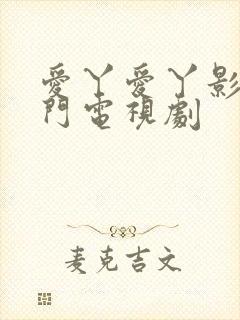 愛丫愛丫影
門電視劇
麦克吉文